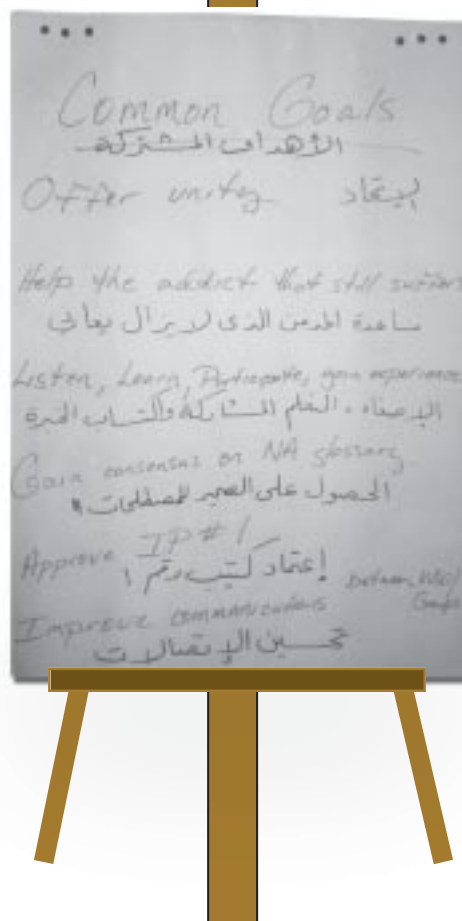 Common Goals
الأهداف المشتركة
Offer unity
Help the addict that still suffers
مساعدة المدمن الذي لا يزال يعاني
Listen, Learn, Participate, gain experience
الإصغاء، التعلم المشاركة واكتساب الخبرة
Gain consensus on NA glossary
الحصول على لمصطلحات
Approve IP # 1
إعتماد كتيب رقم ١
Improve communications between
Groups
تحسين الإتصالات